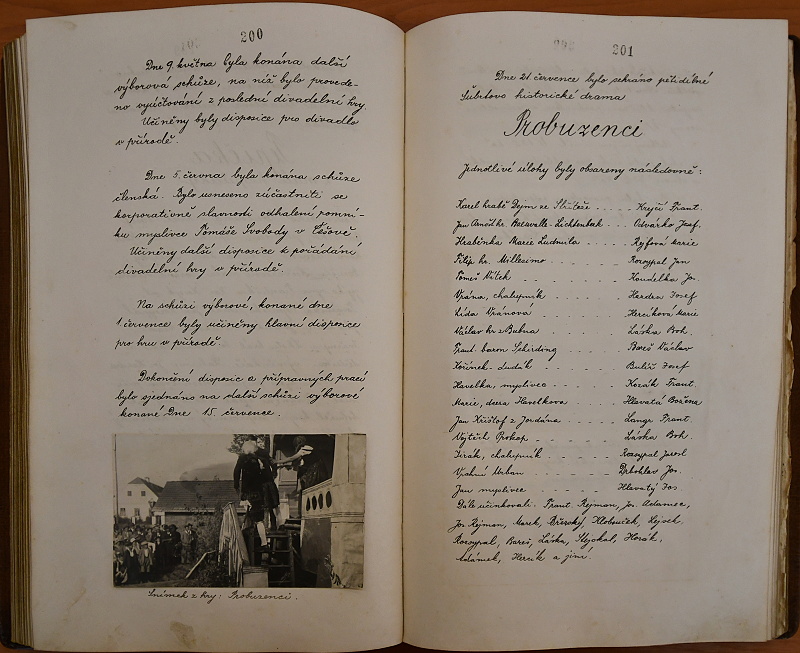 200
Dne 9. května byla konána další
výborová schůze, na níž bylo provede-
no vyúčtování z poslední divadelní hry.
Učiněny byly disposice pro divadlo
v přírodě.
Dne 5. června byla konána schůze
členská. Bylo usneseno zúčastniti se
korporativně slavnosti odhalení pomní-
ku myslivce Tomáše Svobody v Češově.
Učiněny další disposice k pořádání
divadelní hry v přírodě.
Na schůzi výborové, konané dne
1. července byly učiněny hlavní disposice
pro hru v přírodě.
Dokončení disposic a přípravných prací
bylo sjednáno na další schůzi výborové
konané Dne 15. července.
Snímek z hry: Probuzenci.
201
Dne 21. července bylo sehráno pětidílné
Šubrtovo historické drama
Probuzenci
Jednotlivé úlohy byly obsazeny následovně:
Karel hrabě Dejm ze Stříteže ..... Krejčí Frant.
Jan Arnošt hr. Lichtenbak ... Odvárko Josef.
Hraběnka Marie Ludmila ..... Rýfová Marie
Filip hr. Millesimo ...... Rozsypal Jan
Tomeš Vítek ...... Koudelka Jos.
Vrána, chalupník ...... Hazdra Josef
Lída Vránova ...... Hercíková Marie
Václav hr. z Bubna ..... Láska Boh.
Frant. baron Schirding .... Bareš Václav
Kořínek - Ludák ..... Bulíř Josef
Havelka, myslivec .... Kozák Frant.
Marie, dcera Havelkova .... Hlavatá Božena
Jan Krištof z Jordána .... Langr Frant.
Vojtěch Prokop ...... Láska Boh.
Jirák, chalupník ..... Rozsypal Jarosl
Vrchní Urban ..... Drbohlav Jos.
Jan myslivec ..... Hlavatý Jos
Dále účinkovali: Frant. Rejman, Jos. Adamec,
Jos. Rejman, Marek, Hlobuček, Lejsek
Rozsypal, Bareš, Láska, Stejskal, Horák,
Adámek, Hercík a jiní.